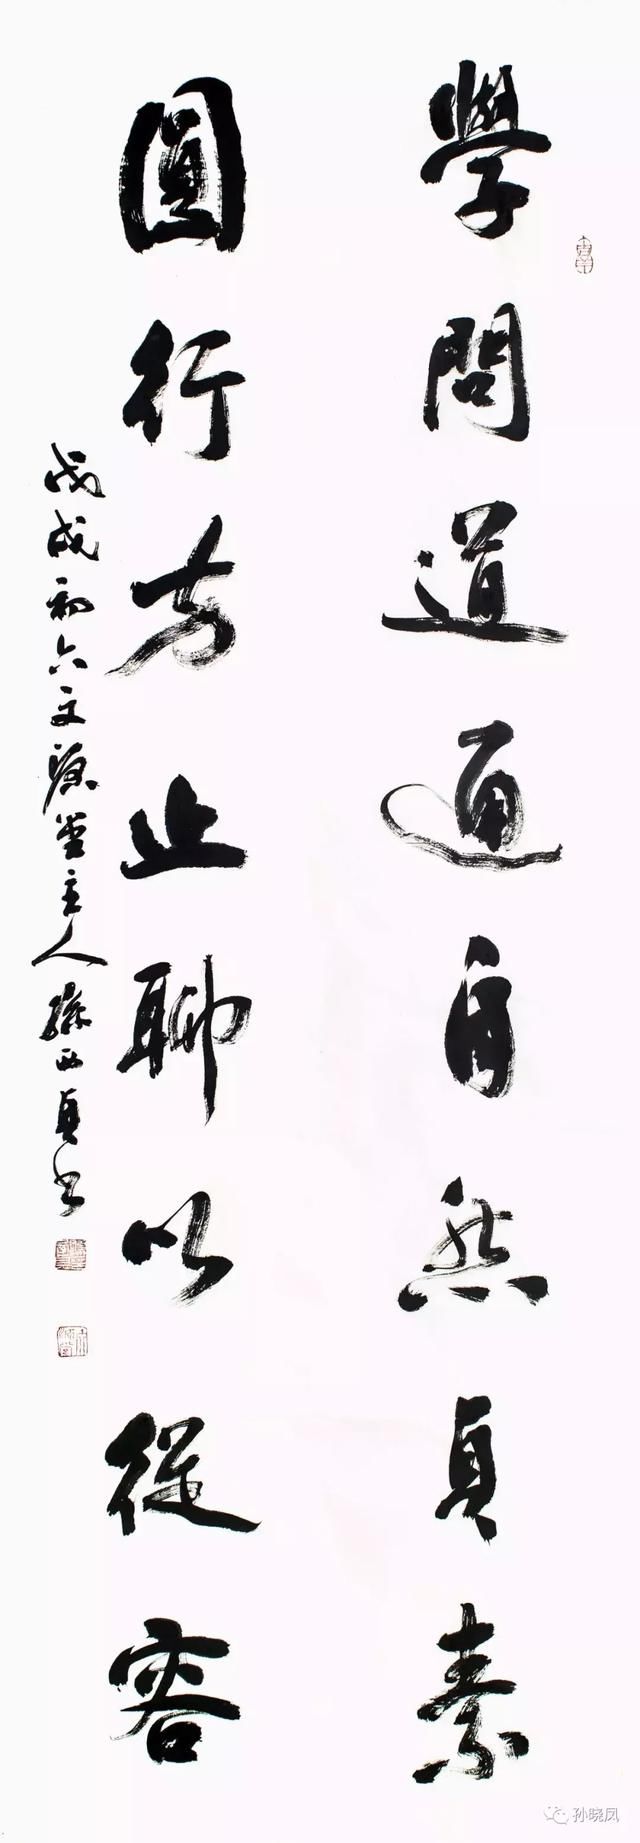 學問道通自然貞素
圓行方止聊以從容
戊戌初六文堂主人孫西貞书
孙晓凤